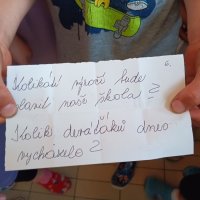 6.
Kolikáté výročí bude
slavit naše škola?
Kolik deváťáků dnes
vycházelo?